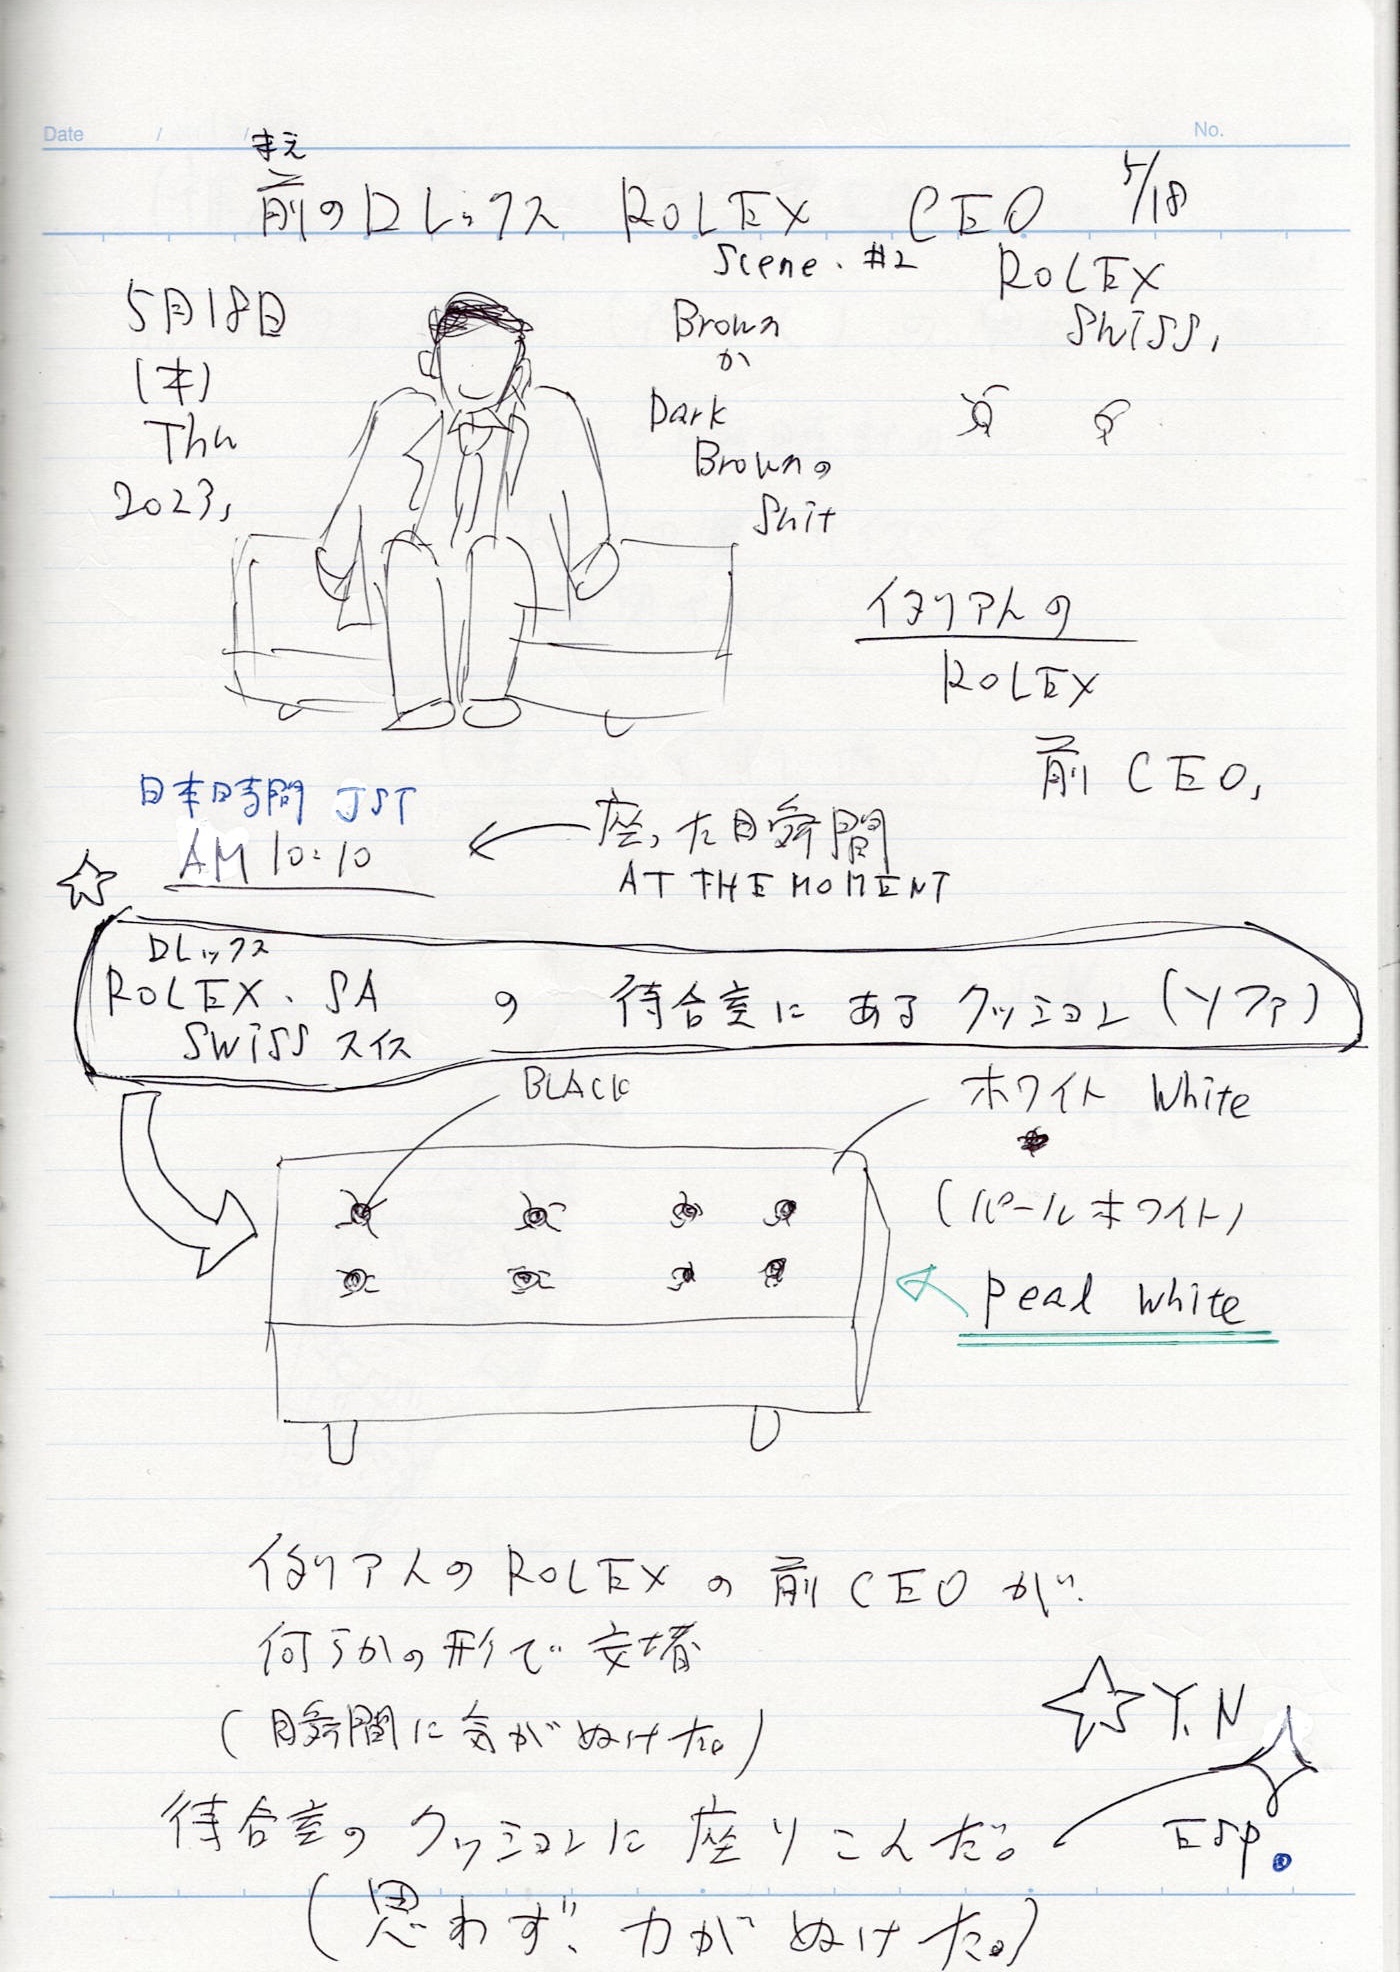 Date / /
No.
まえ
前のロレックス ROLEX CEO 5/18
Scene. #2
ROLEX
SWiSS,
5月18日
(木)
Thu
2023,
Brown
か
Dark
Brownの
Shit
イタリア人の
ROLEX
前 CEO,
日本時間 JST
AM 10:10
座った瞬間
AT THE MOMENT
ロレックス
ROLEX. SA の 待合室に ある クッション (ソファ)
SWiSS スイス
BLACK
ホワイト White
(パールホワイト)
Peal White
イタリア人の ROLEX の 前 CEO が、
何らかの形で 安堵
(瞬間に気がぬけた。)
Y.N
待合室の クッションに 座りこんだ。
ESP.
(思わず、力が ぬけた。)